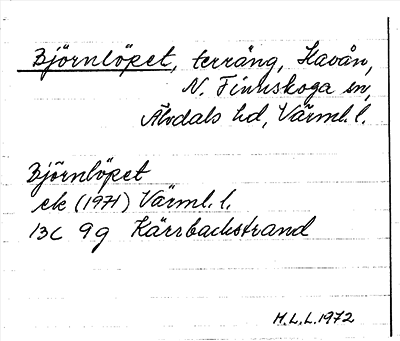 Björnlöpet, terräng, Havån,
N. Finnskoga sn,
Älvdals hd, Värml. l.
Björnlöpet
ek (1971) Värml. l.
13C 9g Kärrbackstrand
H.L.L. 1972